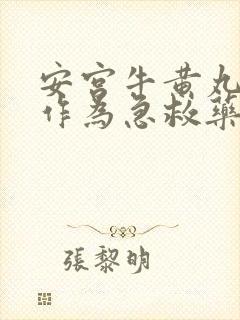 安宮牛黄丸
作為急救藥
張黎明